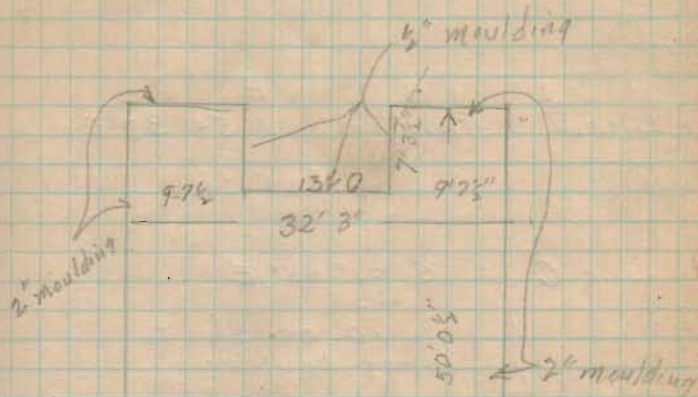 ½" moulding
7' 3½"
9-7½
13'-0
9'7½"
32' 3"
2" moulding
50' 0½"
2" moulding